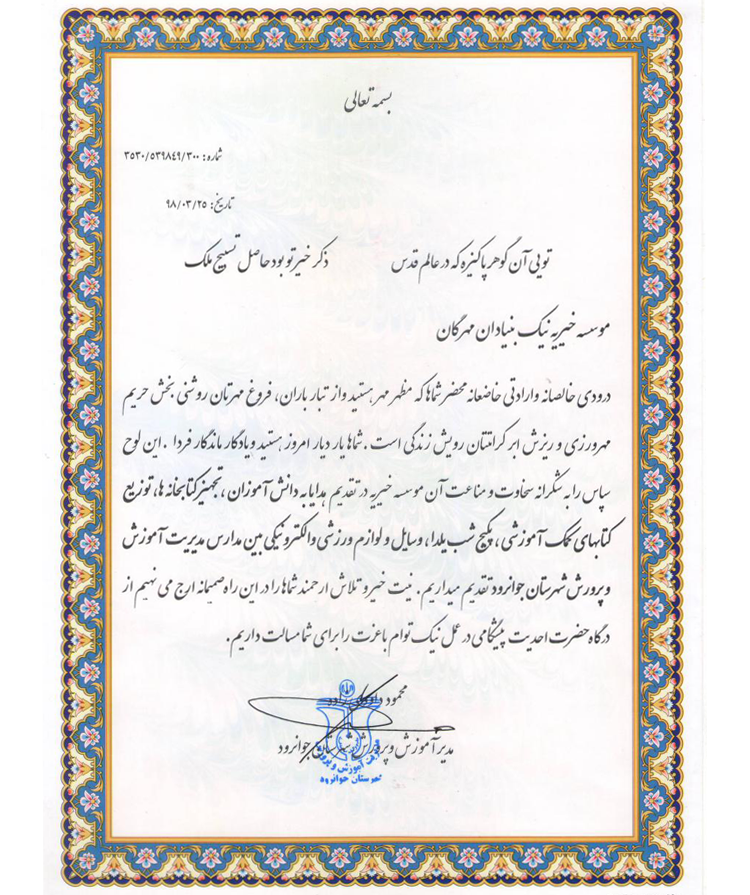 بسمه تعالی
شماره: ۳۵۳۰/۵۳۹۸۴۹/۳۰۰
تاریخ: ۹۸/۰۳/۲۵
تویی آن گوهر پاکیزه که در عالم قدس ذکر خیر تو بود حاصل تسبیح ملک
موسسه خیریه نیک بنیادان مهرگان
درودی خالصانه وارادتی خاضعانه محضر شما که مظهر مهر هستید واز تبار باران، فروغ مهرتان روشنی بخش حریم
مهرورزی و ریزش ابر کرامتتان رویش زندگی است. شما یار دیار امروز هستید و یادگار ماندگار فردا. این لوح
سپاس را به شکرانه سخاوت و مناعت آن موسسه خیریه در تقدیم هدایا به دانش آموزان، تجهیز کتابخانه ها، توزیع
کتابهای کمک آموزشی، پکیج شب یلدا، وسایل و لوازم ورزشی والکترونیکی بین مدارس مدیریت آموزش
و پرورش شهرستان جوانرود تقدیم میداریم. نیت خیر و تلاش ارجمند شما را در این راه صمیمانه ارج می نهیم از
درگاه حضرت احدیت پیشگامی در عمل نیک توام با عزت را برای شما مسالت داریم.
محمود
مدیر آموزش و پرورش شهرستان جوانرود
آموزش و پرورش
شهرستان جوانرود